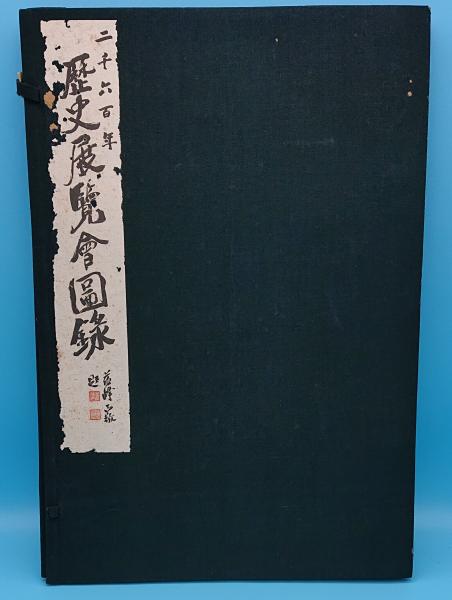 二千六百年
歷史展覽會圖錄
題